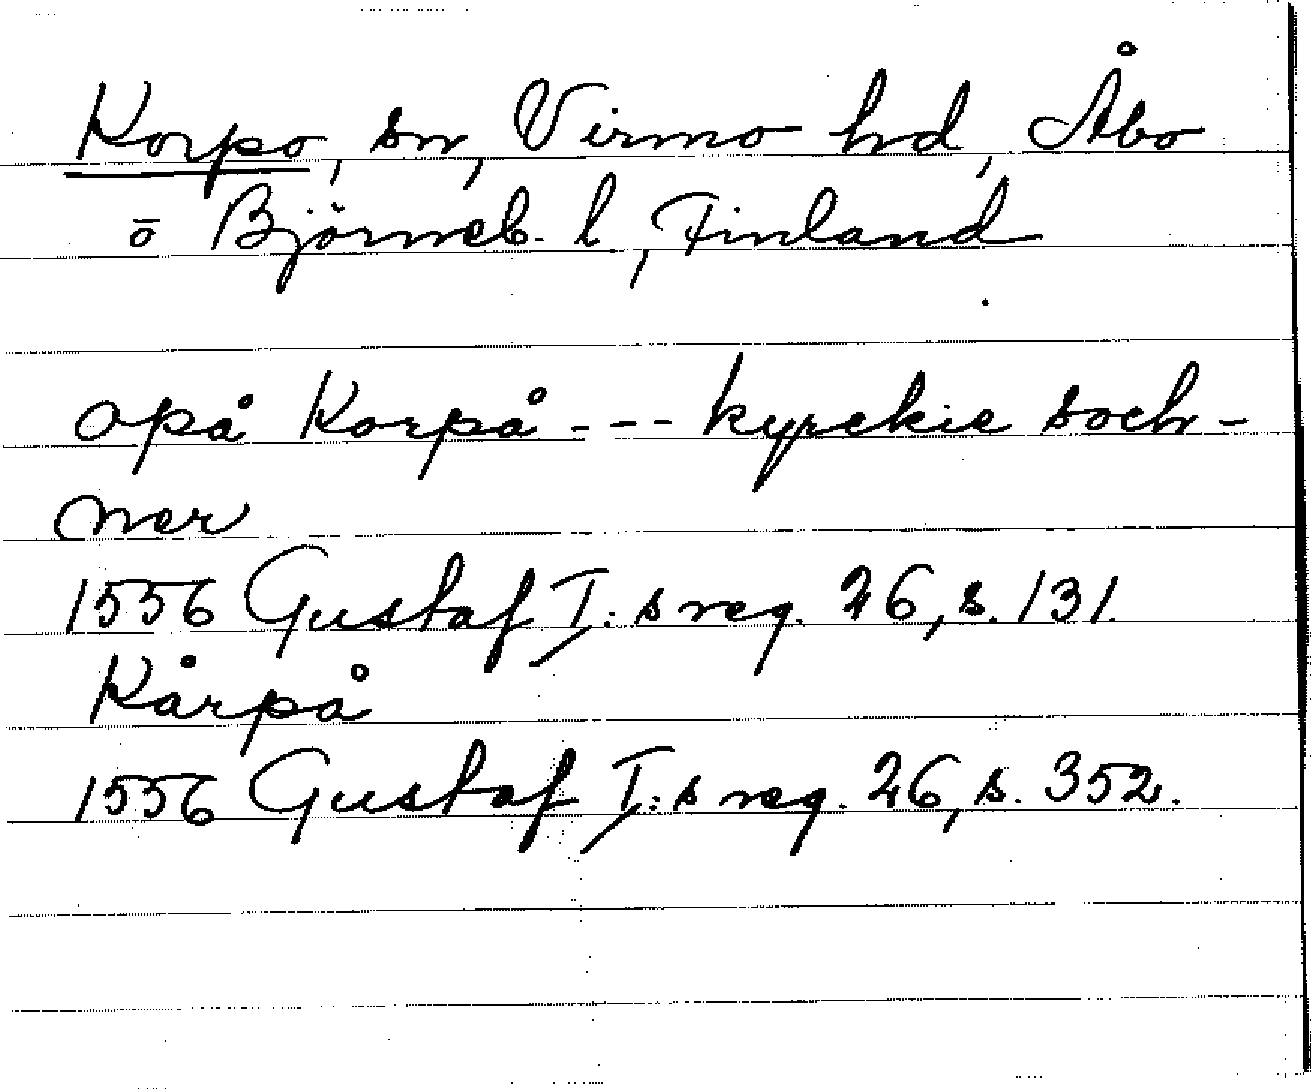 Korpo, sn, Virmo hd, Åbo
o̅ Björneb. l, Finland
opå Korpå --- kyrckie soch-
ner
1556 Gustaf I:s reg. 26, s. 131.
Kårpå
1556 Gustaf I:s reg. 26, s. 352.